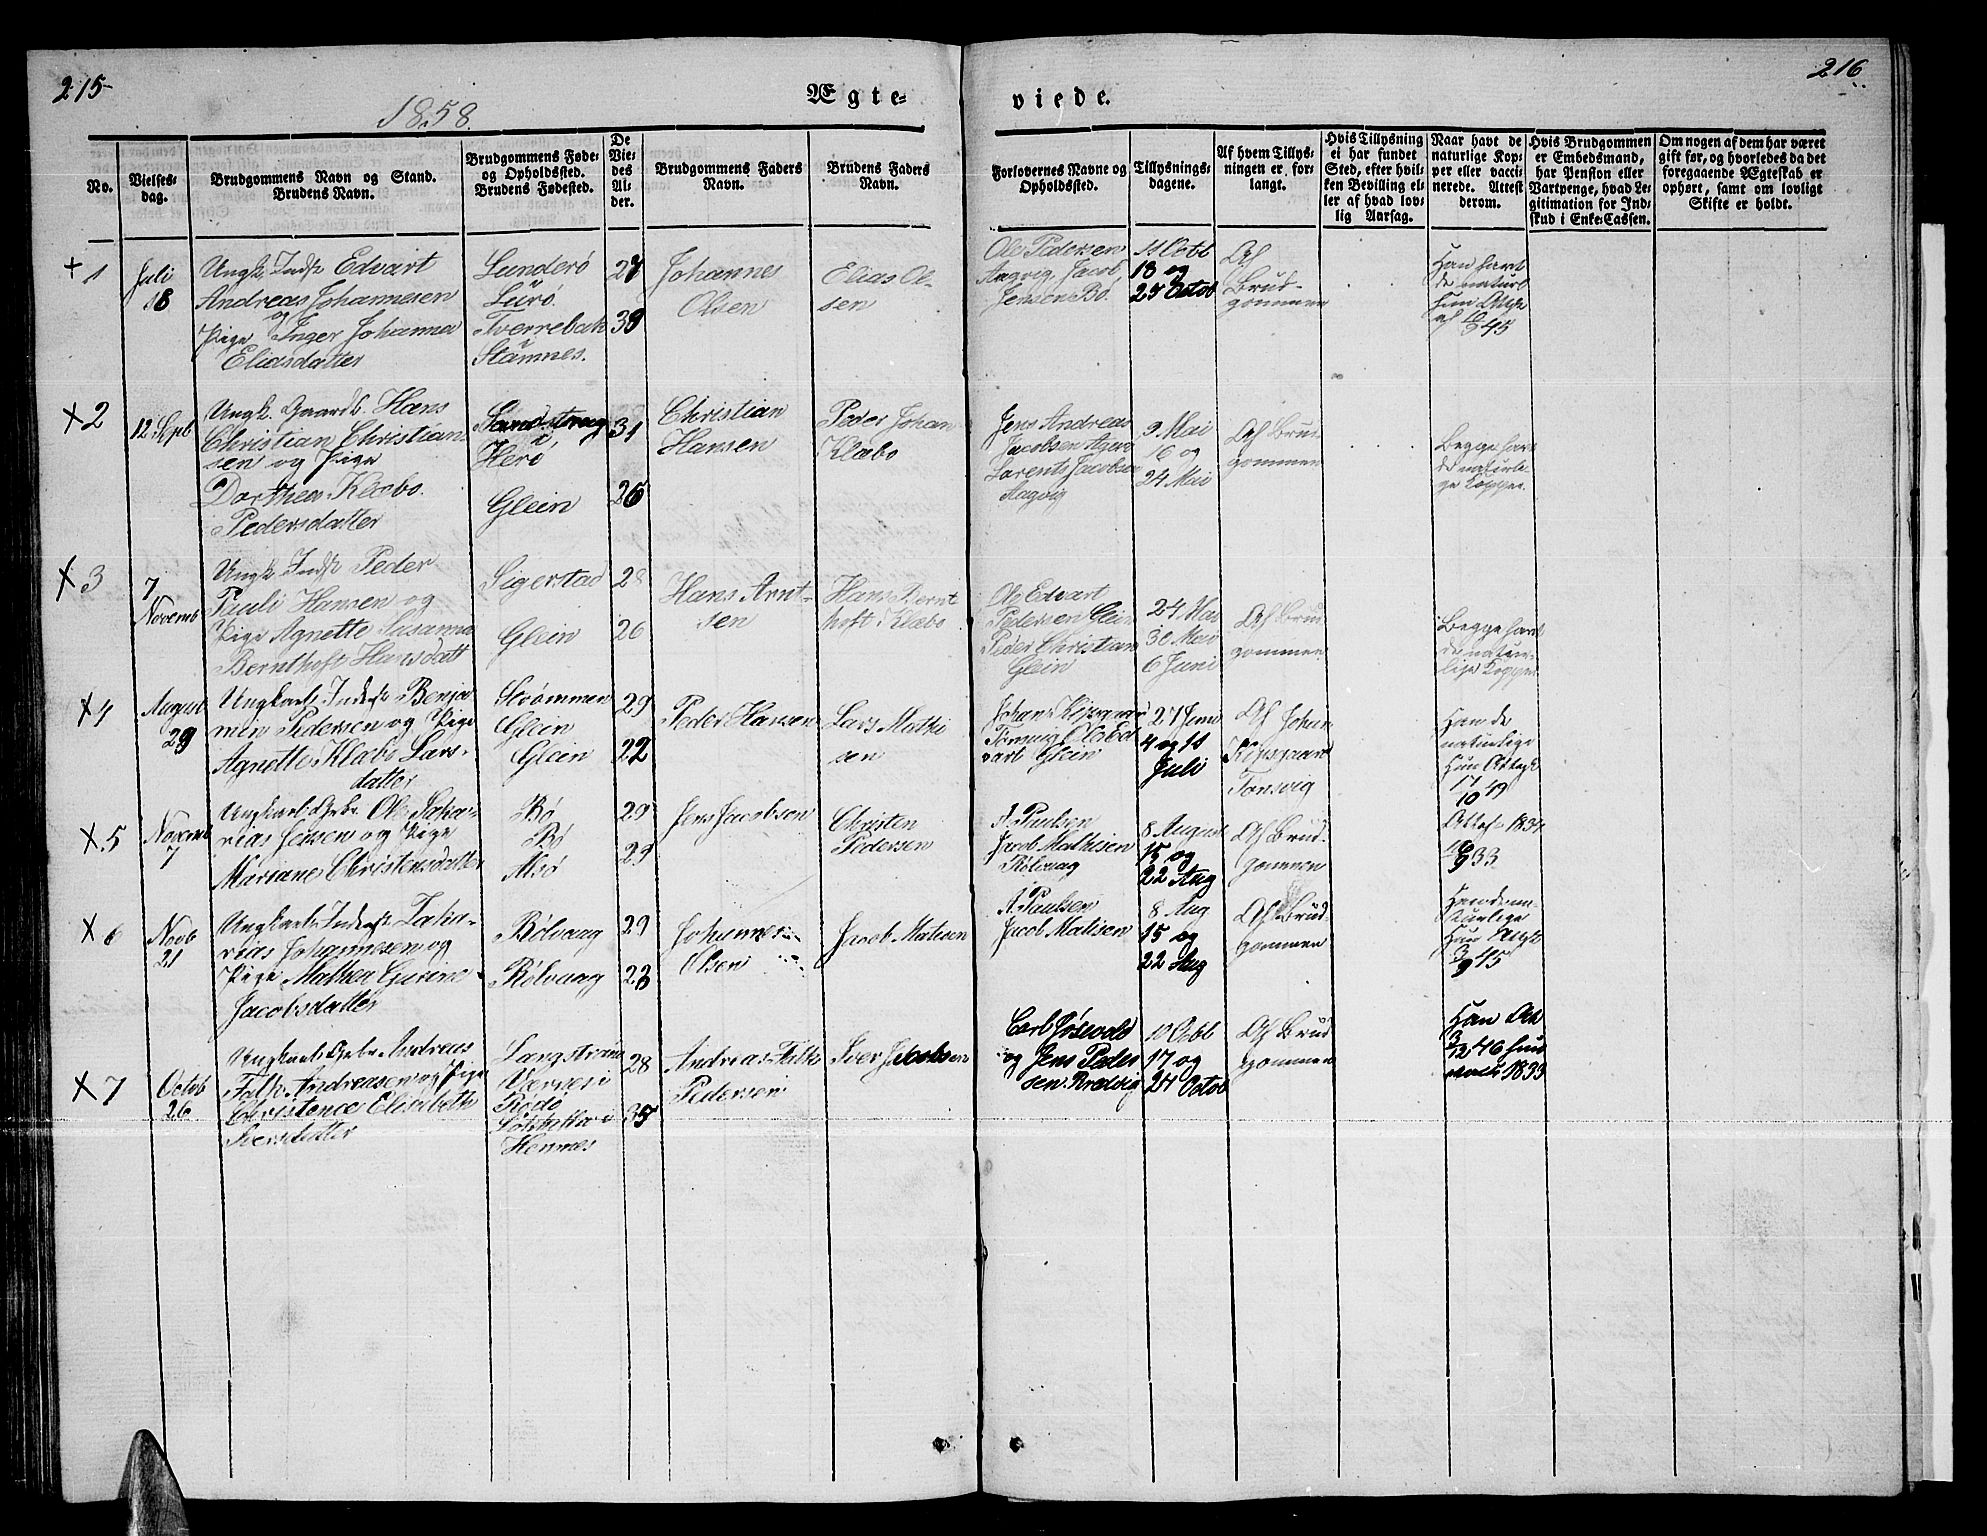 215
216
1858.
Ægte-
viede.
No.
Vielses-
dag.
Brudgommens Navn og Stand.
Brudens Navn.
Brudgommens Føde-
og Opholdssted.
Brudens Fødested.
De
Vie-
des
Al-
der.
Brudgommens Faders
Navn.
Brudens Faders
Navn.
Forlovernes Navne og
Opholdssted.
Tillysnings-
dagene.
Af hvem Tillys-
ningen er for-
langt.
Hvis Tillysning
ei har fundet
Sted, efter hvil-
ken Bevilling el-
ler af hvad lov-
lig Aarsag.
Naar havt de
naturlige Kop-
per eller vacci-
nerede. Attest
derom.
Hvis Brudgommen
er Embedsmand,
har Pension eller
Vartpenge, hvad Le-
gitimation for Ind-
skud i Enke-Cassen.
Om nogen af dem har været
gift før, og hvorledes da det
foregaaende Ægteskab er
ophørt, samt om lovligt
Skifte er holdt.
+ 1
Juli
18
Ungk. Inds Edvart
Andreas Johannesen
og
Pige Inger Johanna
Eliasdatter
Lunderö
i
Lurö
Tverrebak
Stamnes.
27
38
Johannes
Olsen
Elias Ol-
sen
Ole Pedersen
Aagvig, Jacob
Jensen Bö.
11 Octb
18 og
25 Octob
Af
Brud-
gommen
Han havt
de naturl
hun Attest
af 10/9 45
x 2
12 Sept
Ungk. Gaardb. Hans
Christian Christian
sen og Pige
Dorthea Klæbo.
Pedersdatter
i
Herö
Glein
31
26
Christian
Hansen
Peder Johan
Klæbo
Jens Andreas
Jacobsen
Lorents Jacobsen
Aagvig
9 Mai
16 og
24 Mai
Af Bru-
gommen
Begge havt
de naturli-
ge Kopper.
x 3
7
Novemb
Ungk Inds Peder
Pauli Hansen og
Pige Agnette Susanna
Bernthoft Hansdatt
Sigerstad
Glein
28
26
Hans Arnt-
sen
Hans Bernt
hoft Klæbo
Ole Edvart
Pedersen Glein
Peder Christian
Glein
24 Mai
30 Mai
6 Juni
Af Brud
gommen
Begge havt
de natur-
lige Kopper
x 4
August
29
Ungkarl Inds Benja
min Pedersen og Pige
Agnette Klæbo Lars-
datter
Strømmen
Glein
Glein
29
22
Peder Hansen
Lars Mathi
sen
Johan Kopsgaar
Ole Ed
vart Glein
27 Juni
4 og 11
Juli
Af Johan
Kopsgaard
Tonsvig
Han de
naturlige
Hun Attest
17/10 49
x 5
Novemb
7
Ungkarl Ole Saka-
rias Jensen og Pige
Mariane Christensdatter
Bö
Bö
Alsö
29
29
Jens Jacobsen
Christen
Pedersen
A. Paulsen
Jacob Mathisen
Rölvaag
8 August
15 og
22 Aug
Af Brud-
gommen
Attest 1834
16/9 33
x 6
Novb
21
Ungkarl Inds Zaka-
rias Johannesen og
Pige Mathea Gurine
Jacobsdatter
Rölvaag
Rölvaag
29
23
Johannes
Olsen
Jacob Matisen
A. Paulsen
Jacob Matisen
8 Aug
15 og
22 Aug
Af Brud
gommen
Han de na-
turlige
Hun Attest
3/9 45
x 7
Octob
26
Ungkarl Andreas
Falk Andreasen og Pige
Christence Elisabeth
Sversdatter
Langström
Værnes i
Rödö
Hennes
28
35
Andreas Falk
Pedersen
Sver Jacobsen
Carl Jösevold
og Jens Peder
sen Bredvig
10 Octbl
17 og
24 Octob
Af Brud
gommen
Han Att
3/12 46 hun
1833